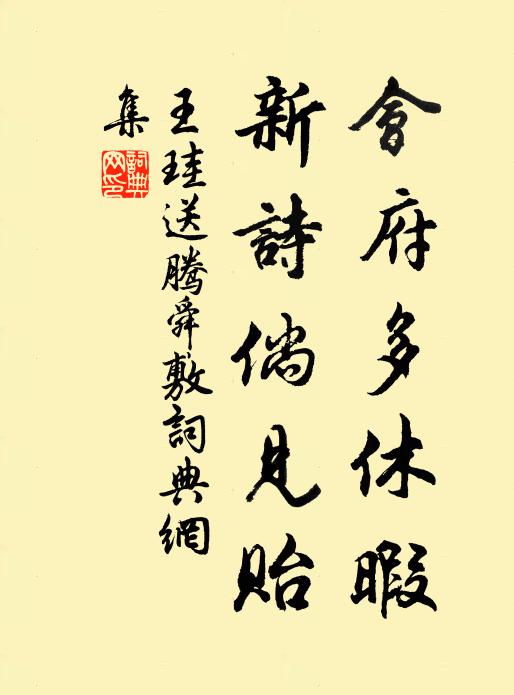 會府多休暇
新詩倘見貽
王珪送騰舜敷詞典網
集
詞典網印